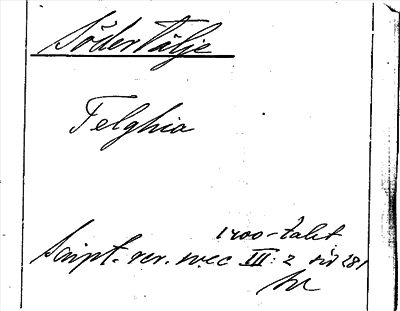 Södertälje
Telghia
1400-talet
Script. rer. svec III: 2 sid 281